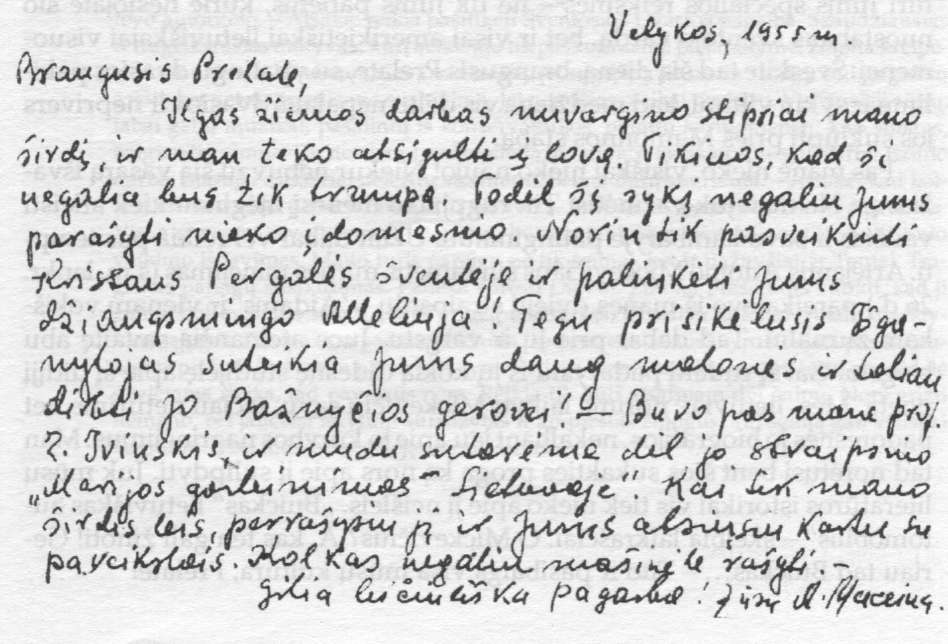 Velykos, 1955 m
Brangusis Prelate,
Ilgas žiemos darbas nuvargino stipriai mano
širdį, ir man teko atsigulti į lovą. Tikiuos, kad ši
negalia bus tik trumpa. Todėl šį sykį negaliu Jums
parašyti nieko domesnio. Noriu tik pasveikinti
Kristaus Pergalės šventėje ir palinkėti Jums
džiaugsmingo Alleluja! Tegu prisikėlusis Išga-
nytojas suteikia Jums daug malonės ir toliau
dirbti jo Bažnyčios gerovei! — Buvo pas mane prof.
Z. Ivinskis, ir mudu sutarėme dėl jo straipsnio
„Marijos garbinimas Lietuvoje". Kai tik mano
širdis leis perrašysiu jį ir Jums atsiųsiu kartu su
paveikslais. Kol kas negaliu mašinėle rašyti. —
Giliai pagarba! Jūsų A. Maceina.